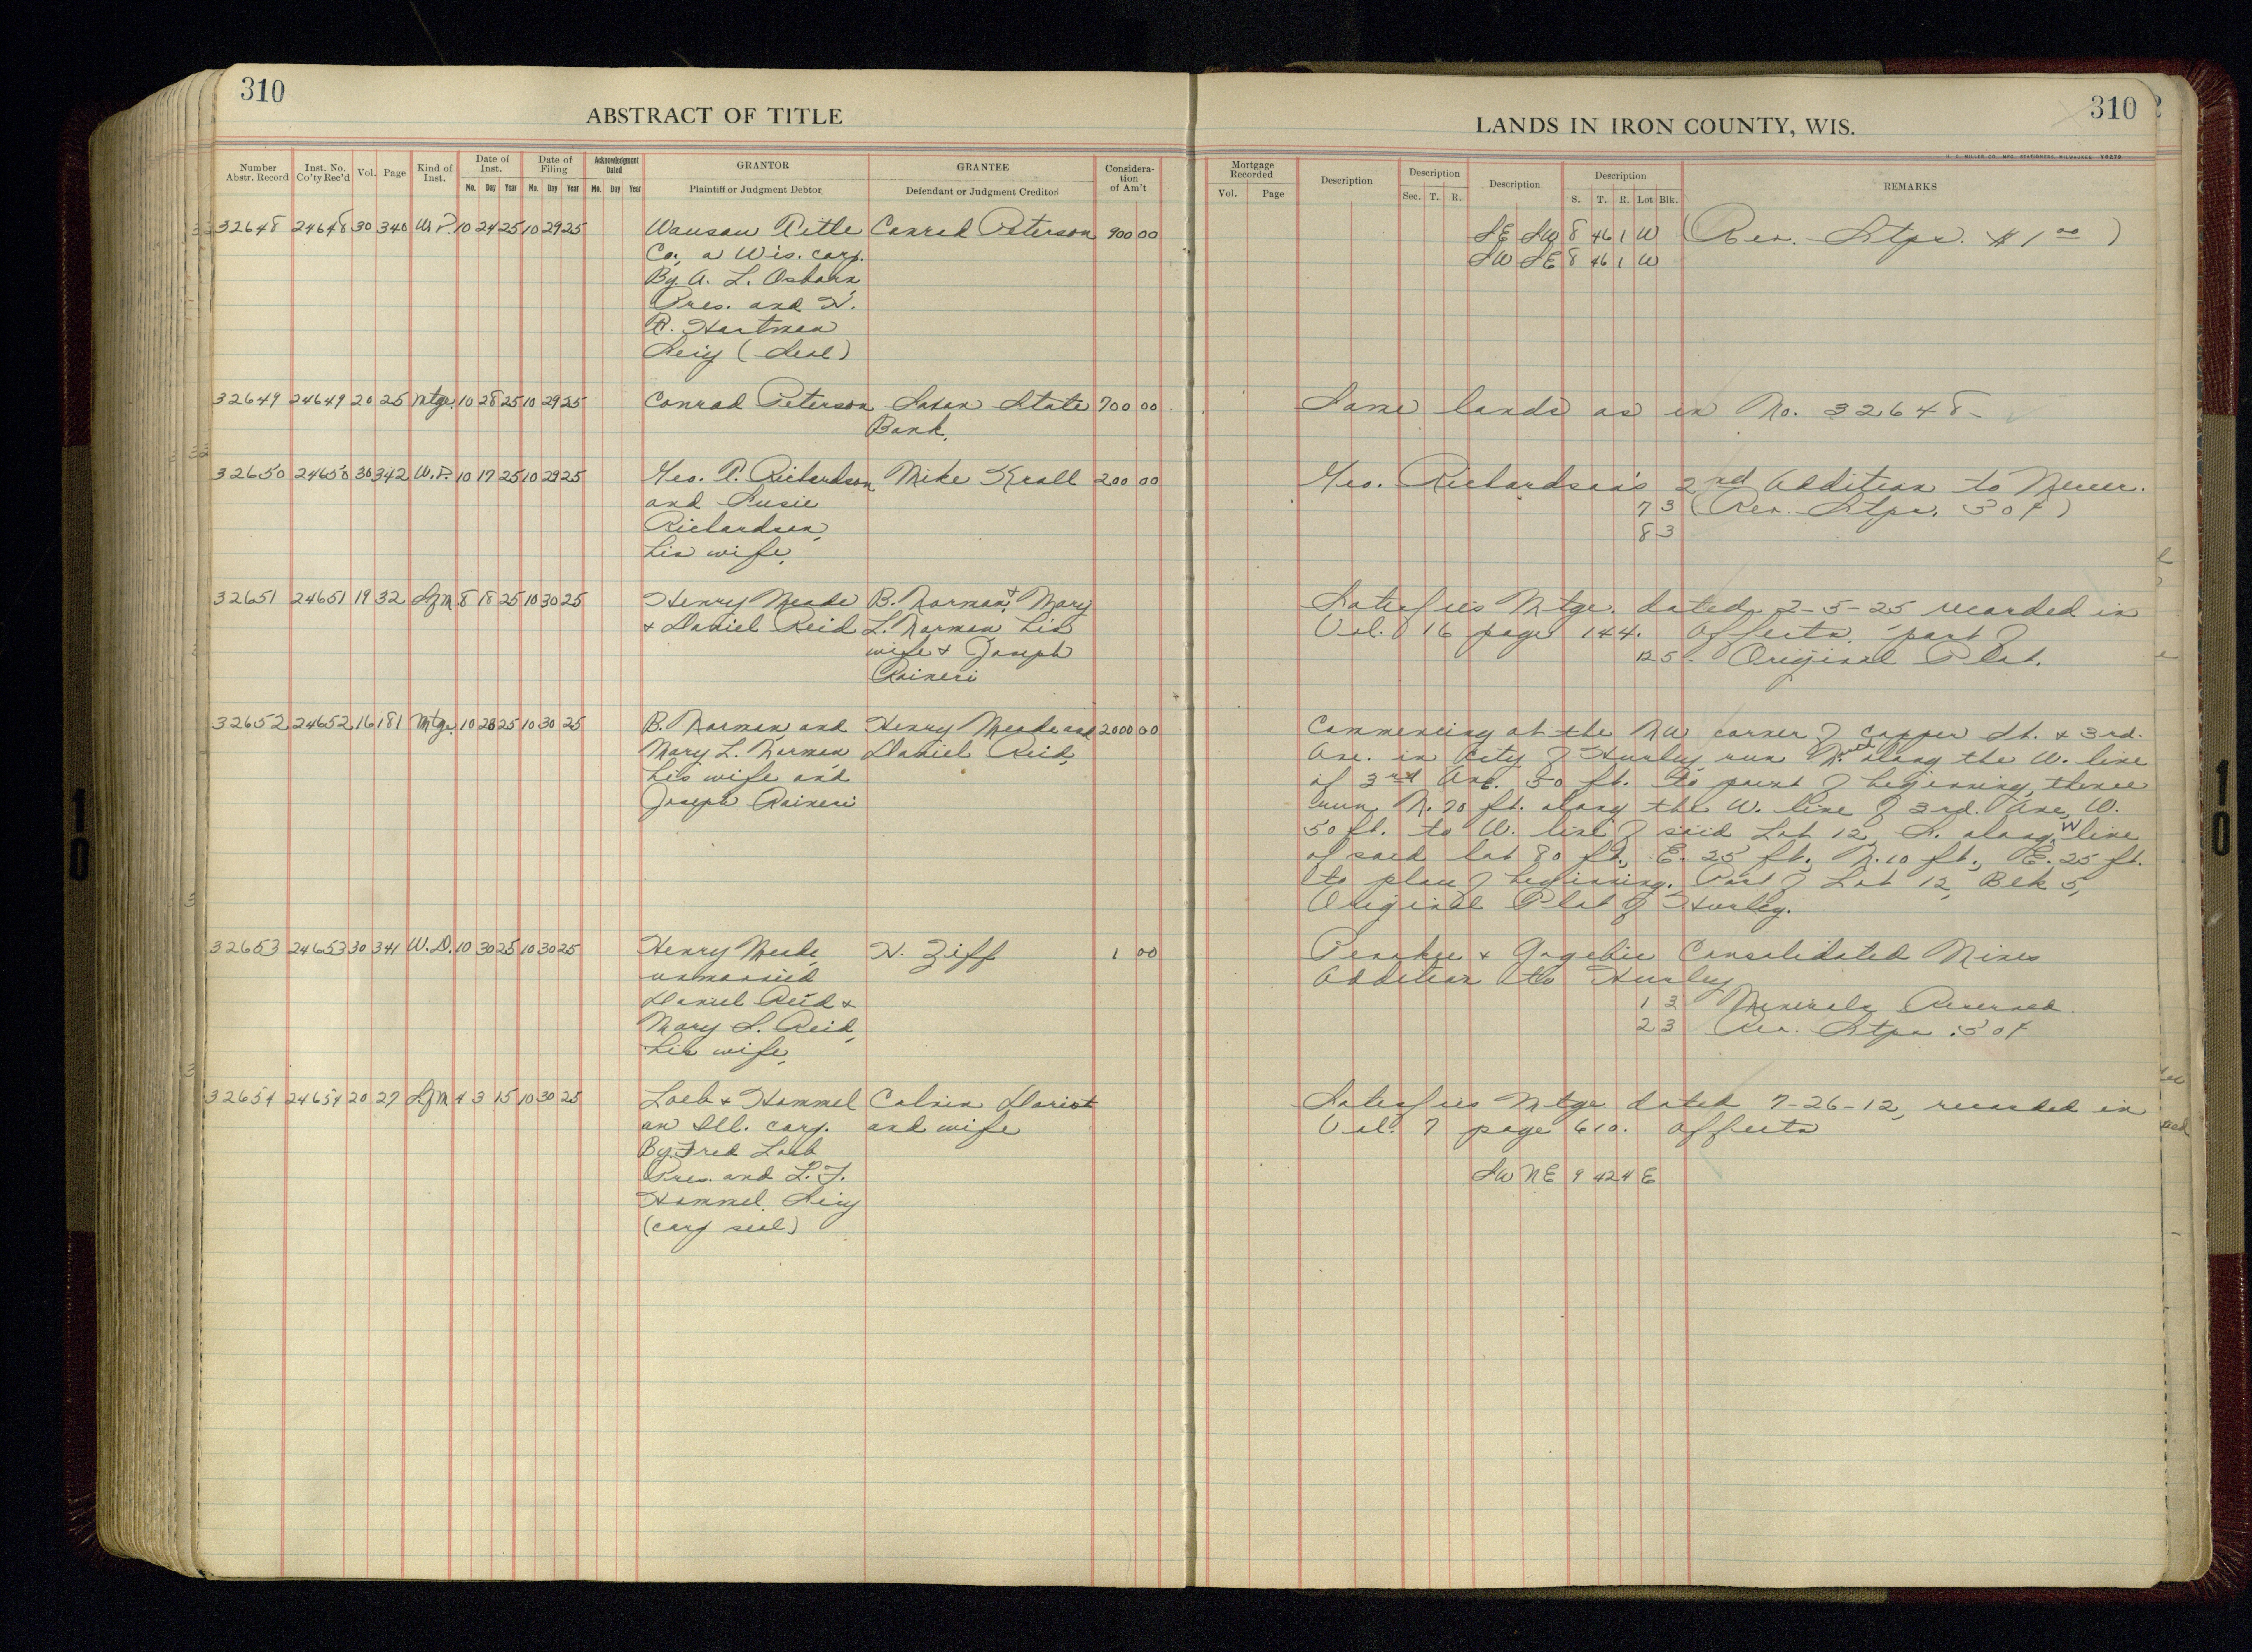 310
ABSTRACT OF TITLE
Number Abstr. Record Inst. No. Co'ty Rec'd Vol. Page Kind of Inst. Date of Inst. Mo. Day Year Date of Filing Mo. Day Year Acknowledgment Dated Mo. Day Year GRANTOR Plaintiff or Judgment Debtor GRANTEE Defendant or Judgment Creditor Considera-tion of Am't
32648 24648 30 340 W.D. 10 24 25 10 29 25 Wausau Title Conrad Peterson 900 00
Co., a Wis. corp.
By A. L. Osborn
Pres. and H.
R. Hartman
Secy (Seal)
32649 24649 20 25 Mtge. 10 28 25 10 29 25 Conrad Peterson Saxon State 700 00
Bank.
32650 24650 30 342 W.D. 10 17 25 10 29 25 Geo. P. Richardson Mike Krall 200 00
and Susie
Richardson,
his wife.
32651 24651 19 32 Sfm 8 18 25 10 30 25 Henry Meade B. Norman & Mary
& Daniel Reid L. Norman his
wife & Joseph
Raineri
32652 24652 16 181 Mtge 10 28 25 10 30 25 B. Norman and Henry Meade and 2000 00
Mary L. Norman Daniel Reid,
his wife and
Joseph Raineri
32653 24653 30 341 W.D. 10 30 25 10 30 25 Henry Meade, H. Ziff 1 00
unmarried
Daniel Reid &
Mary L. Reid,
his wife.
32654 24654 20 27 Sfm 4 3 15 10 30 25 Loeb & Hammel Calvin Doriot
an Ill. corp. and wife
By Fred Loeb
Pres. and L. F.
Hammel Secy
(corp seal)
310
LANDS IN IRON COUNTY, WIS.
H. C. MILLER CO., MFG. STATIONERS, MILWAUKEE
Mortgage Recorded Vol. Page Description Description Sec. T. R. Description Description S. T. R. Lot Blk. REMARKS
SE SW 8 46 1 W (Rev. Stps. $1 00)
SW SE 8 46 1 W
Same lands as in No. 32648-
Geo. Richardson's 2nd Addition to Mercer.
7 3 (Rev. Stps. 50¢)
8 3
Satisfies Mtge. dated 2-5-25 recorded in
Vol. 16 page 144. Affects part of
12 5- Original Plat.
Commencing at the NW corner of Copper St. & 3rd.
Ave. in City of Hurley, run N. along the W. line
of 3rd Ave. 50 ft. to point of beginning, thence
run N. 70 ft. along the W. line of 3rd. Ave, W.
50 ft. to W. line of said Lot 12, S. along W line
of said lot 80 ft., E. 25 ft., N. 10 ft., E. 25 ft.
to place of beginning. Part of Lot 12, Blk 5,
Original Plat of Hurley.
Penokee & Gogebic Consolidated Mines
Addition to Hurley
1 3 Minerals Reserved.
2 3 Rev. Stps .50¢
Satisfies Mtge dated 7-26-12, recorded in
Vol. 7 page 610. Affects
SW NE 9 42 4 E
10
10